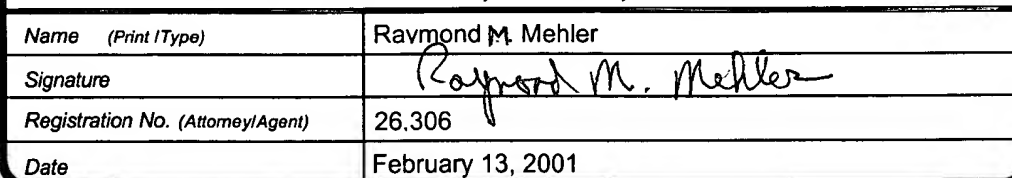 Name (Print /Type) Raymond M. Mehler
Signature Raymond M. Mehler
Registration No. (Attorney/Agent) 26,306
Date February 13, 2001